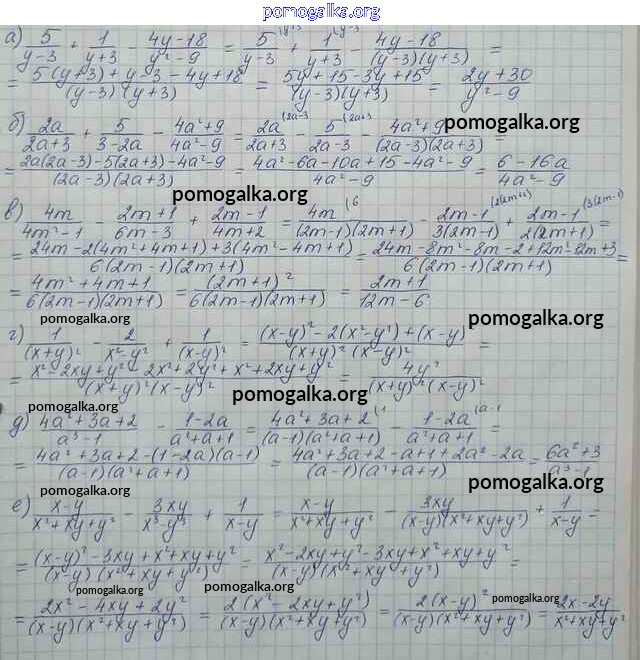 pomogalka.org
а) 5/(y-3) + 1/(y+3) - (4y-18)/(y²-9) = 5/(y-3) ^(y+3) + 1/(y+3) ^(y-3) - (4y-18)/((y-3)(y+3)) =
= (5(y+3)+y-3-4y+18)/((y-3)(y+3)) = (5y+15-3y+15)/((y-3)(y+3)) = (2y+30)/(y²-9)
б) 2a/(2a+3) + 5/(3-2a) - (4a²+9)/(4a²-9) = 2a/(2a+3) ^(2a-3 - 5/(2a-3) ^(2a+3 - (4a²+9)/((2a-3)(2a+3)) =
pomogalka.org
= (2a(2a-3)-5(2a+3)-4a²-9)/((2a-3)(2a+3)) = (4a²-6a-10a+15-4a²-9)/(4a²-9) = (6-16a)/(4a²-9)
pomogalka.org
в) 4m/(4m²-1) - (2m+1)/(6m-3) + (2m-1)/(4m+2) = 4m/((2m-1)(2m+1)) ^(6 - (2m-1)/(3(2m-1)) ^(2(2m+1) + (2m-1)/(2(2m+1)) ^(3(2m-1) =
= (24m-2(4m²+4m+1)+3(4m²-4m+1))/(6(2m-1)(2m+1)) = (24m-8m²-8m-2+12m²-12m+3)/(6(2m-1)(2m+1)) =
= (4m²+4m+1)/(6(2m-1)(2m+1)) = (2m+1)²/(6(2m-1)(2m+1)) = (2m+1)/(12m-6)
pomogalka.org
pomogalka.org
г) 1/(x+y)² - 2/(x²-y²) + 1/(x-y)² = ((x-y)²-2(x²-y²)+(x-y))/((x+y)²(x-y)²) =
= (x²-2xy+y²-2x²+2y²+x²+2xy+y²)/((x+y)²(x-y)²) = 4y²/((x+y)²(x-y)²)
pomogalka.org
pomogalka.org
д) (4a²+3a+2)/(a³-1) - (1-2a)/(a²+a+1) = (4a²+3a+2)/((a-1)(a²+a+1)) ^(1 - (1-2a)/(a²+a+1) ^(a-1 =
= (4a²+3a+2-(1-2a)(a-1))/((a-1)(a²+a+1)) = (4a²+3a+2-a+1+2a²-2a)/((a-1)(a²+a+1)) = (6a²+3)/(a³-1)
pomogalka.org
pomogalka.org
е) (x-y)/(x²+xy+y²) - 3xy/(x³-y³) + 1/(x-y) = (x-y)/(x²+xy+y²) - 3xy/((x-y)(x²+xy+y²)) + 1/(x-y) =
= ((x-y)²-3xy+x²+xy+y²)/((x-y)(x²+xy+y²)) = (x²-2xy+y²-3xy+x²+xy+y²)/((x-y)(x²+xy+y²)) =
pomogalka.org
pomogalka.org
pomogalka.org
= (2x²-4xy+2y²)/((x-y)(x²+xy+y²)) = 2(x²-2xy+y²)/((x-y)(x²+xy+y²)) = 2(x-y)²/((x-y)(x²+xy+y²)) = (2x-2y)/(x²+xy+y²)